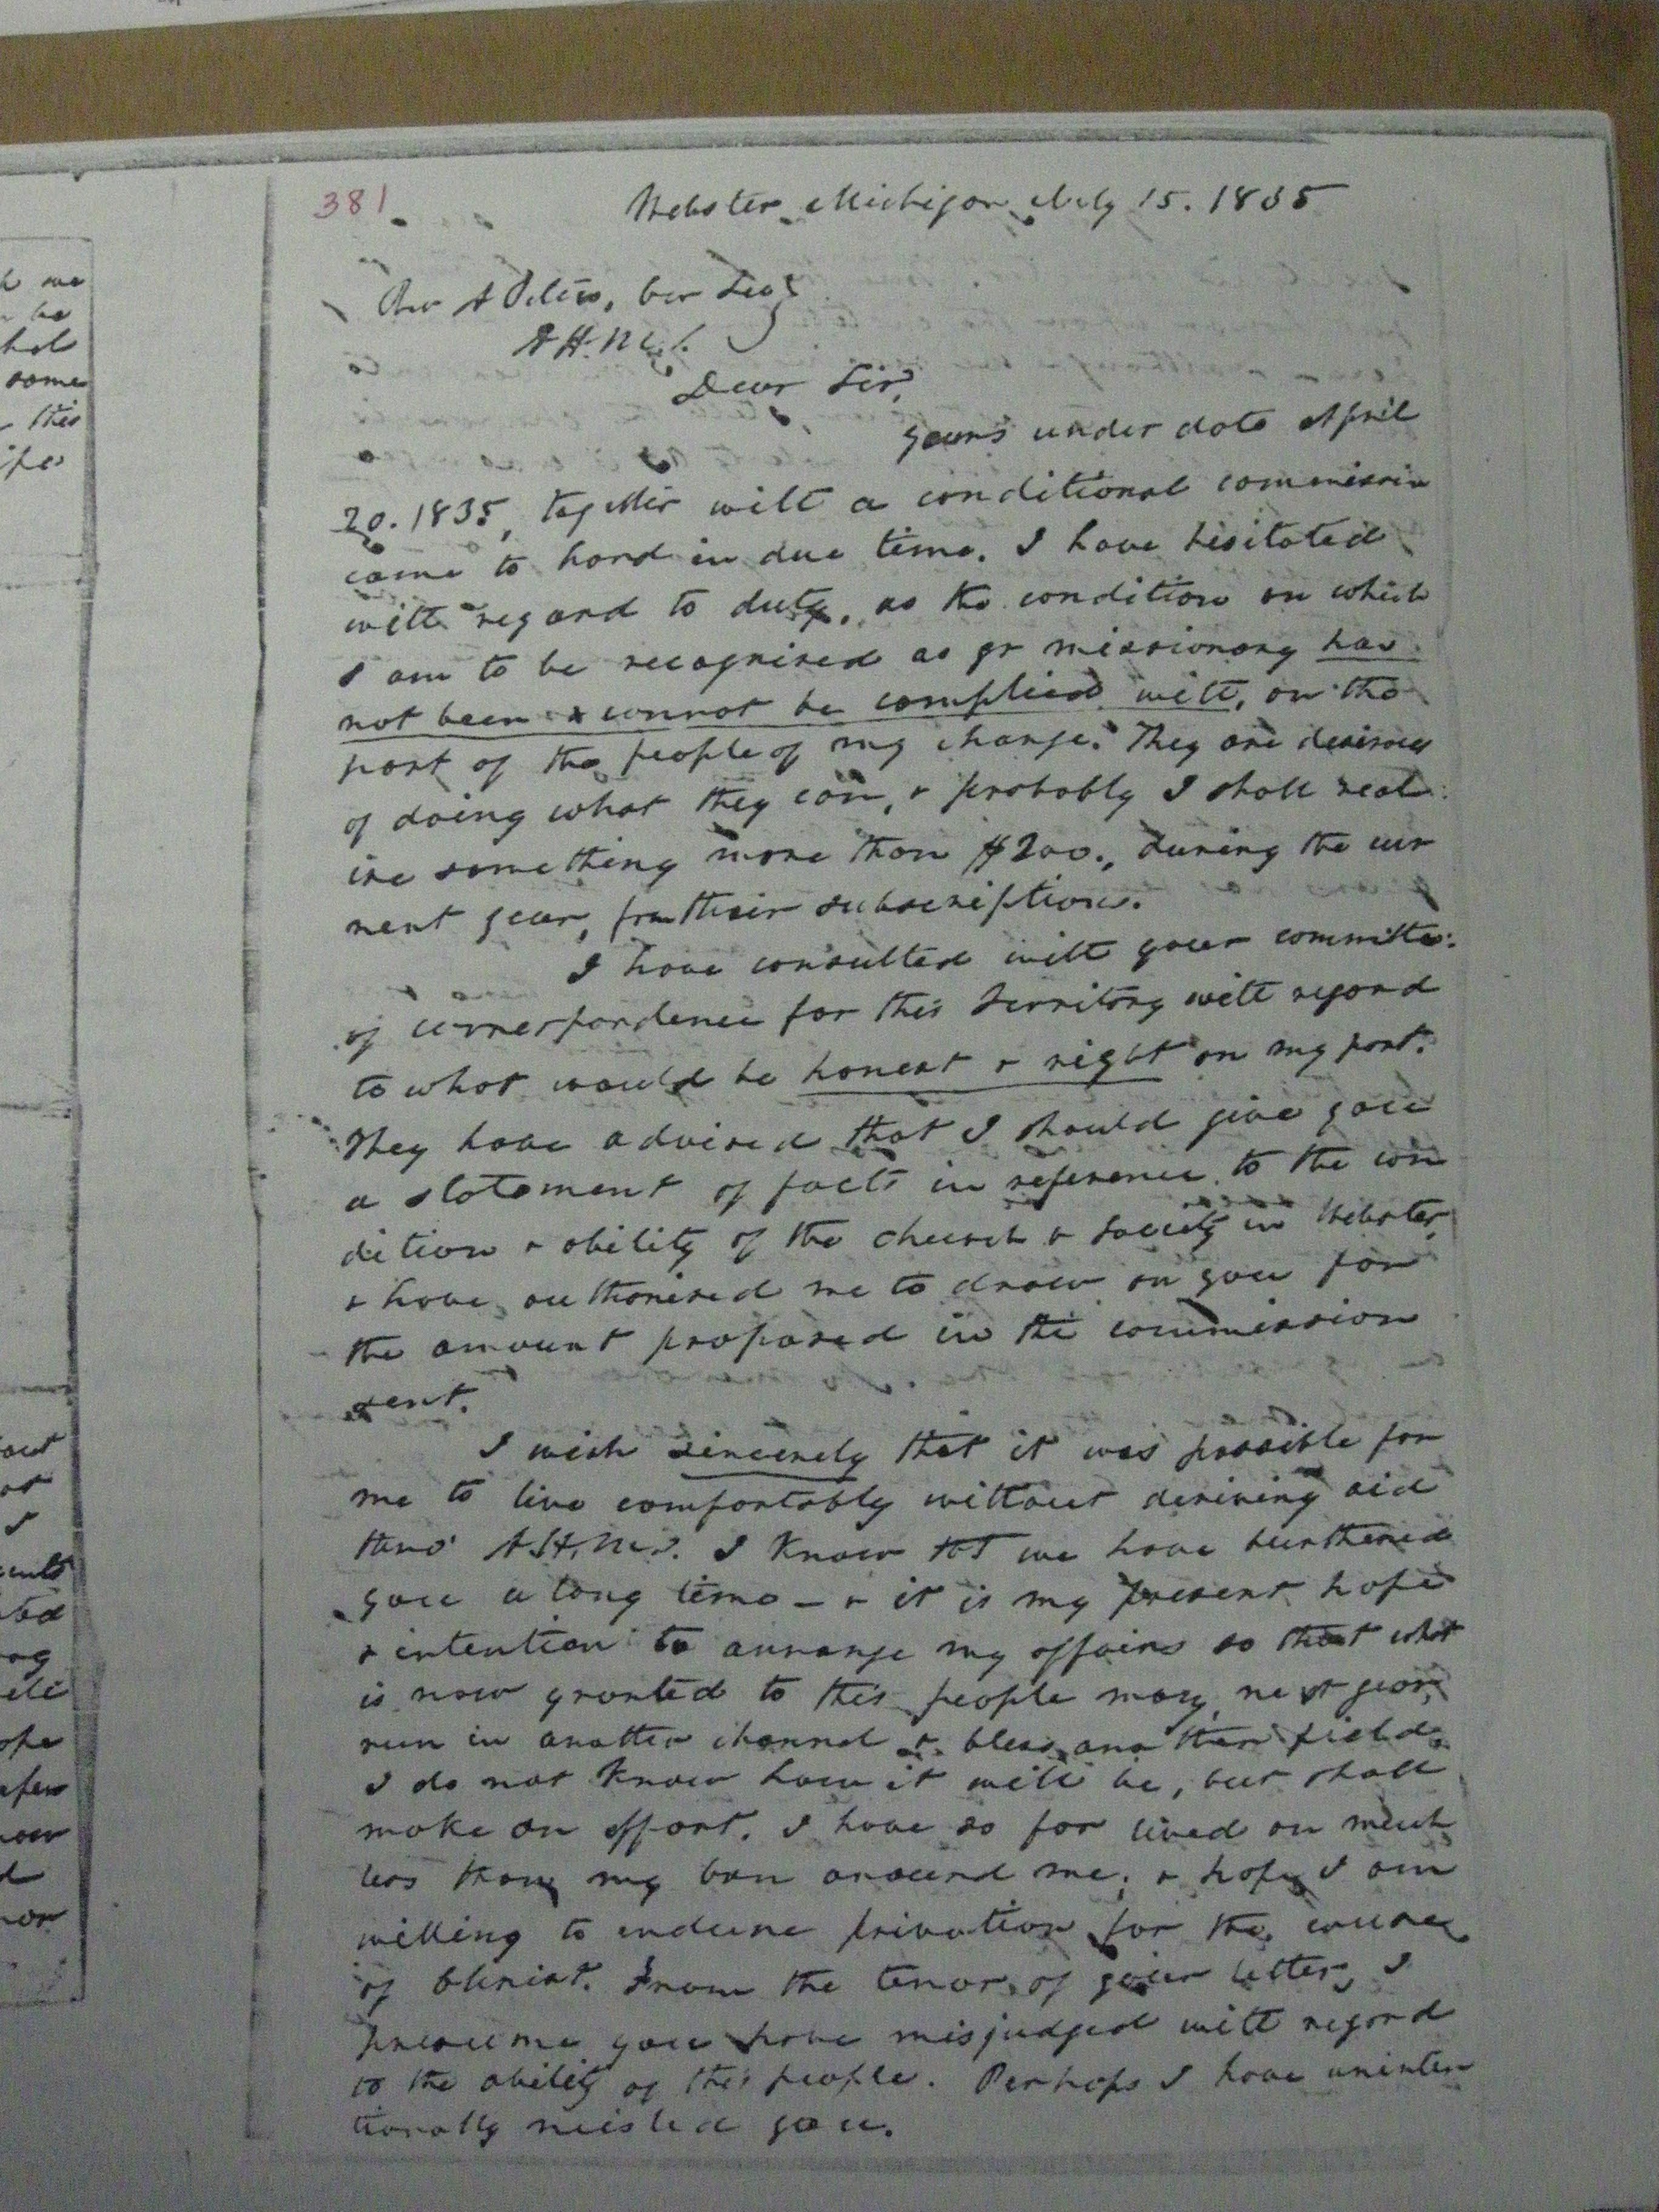 381
Webster Michigan July 15. 1835
Rev A Peters, Cor Sec
A.H.M.S.
Dear Sir,
Yours under date April
20. 1835, together with a conditional commission
came to hand in due time. I have hesitated
with regard to duty, as the condition on which
I am to be recognised as yr missionary has
not been & cannot be complied with, on the
part of the people of my charge. They are desirous
of doing what they can, & probably I shall real
ise something more than $200., during the cur
rent year, from their subscriptions.
I have consulted with your committee
of correspondence for this Territory with regard
to what would be honest & right on my part.
They have advised that I should give you
a statement of facts in reference to the con
dition & ability of the church & society in Webster,
& have authorised me to draw on you for
the amount proposed in the commission
sent.
I wish sincerely that it was possible for
me to live comfortably without deriving aid
thro' A.H.M.S. I know tht we have burthened
you a long time - & it is my present hope
& intention to arrange my affairs so that what
is now granted to this people may, next year,
run in another channel & bless another field.
I do not know how it will be, but shall
make an effort. I have so far lived on much
less than my brn around me, & hope I am
willing to endure privation for the cause
of Christ. From the tenor of your letter, I
presume you have misjudged with regard
to the ability of this people. Perhaps I have uninten
tionally misled you.
me
be
some
this